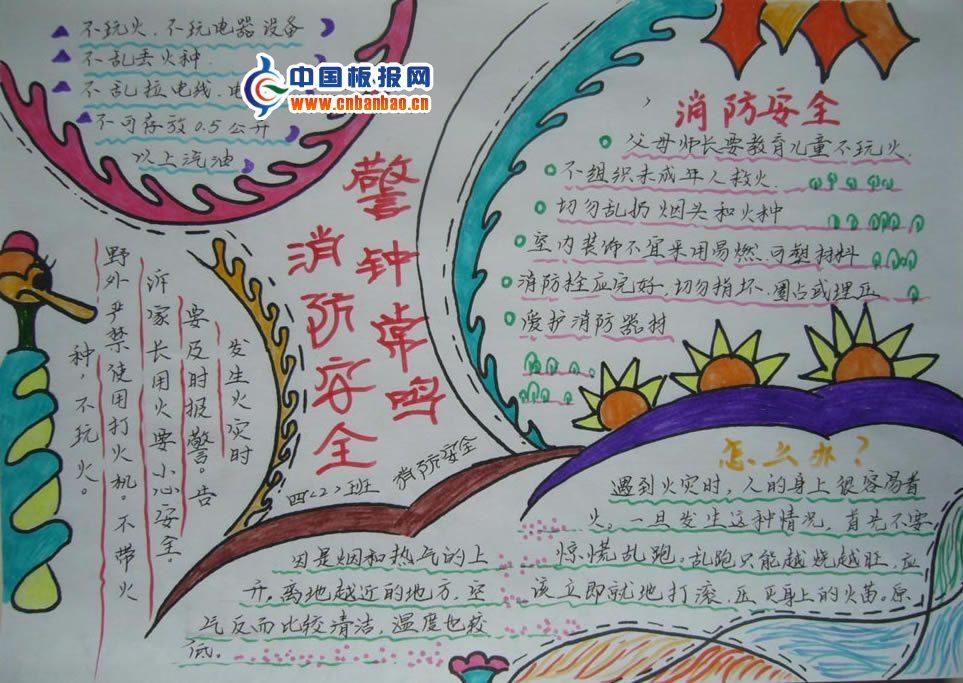 不玩火、不玩电器设备
不乱丢火种.
不乱拉电线.电
不可存放0.5公升
以上汽油
中国板报网
www.cnbanbao.cn
消防安全
父母师长要教育儿童不玩火.
不组织未成年人救火.
切勿乱扔烟头和火种
室内装饰不宜采用易燃.可塑材料
消防栓应完好,切勿损坏.圈占或埋压
爱护消防器材
警钟常鸣
消防安全
四<2>班
消防安全
发生火灾时
要及时报警。告
诉家长用火要小心安全。
野外严禁使用打火机。不带火
种,不玩火。
怎么办?
遇到火灾时,人的身上很容易着
火。一旦发生这种情况,首先不要
惊慌乱跑。乱跑只能越烧越旺.应
该立即就地打滚.压灭身上的火苗.原
因是烟和热气的上
升.离地越近的地方.空
气反而比较清洁,温度也较
低.